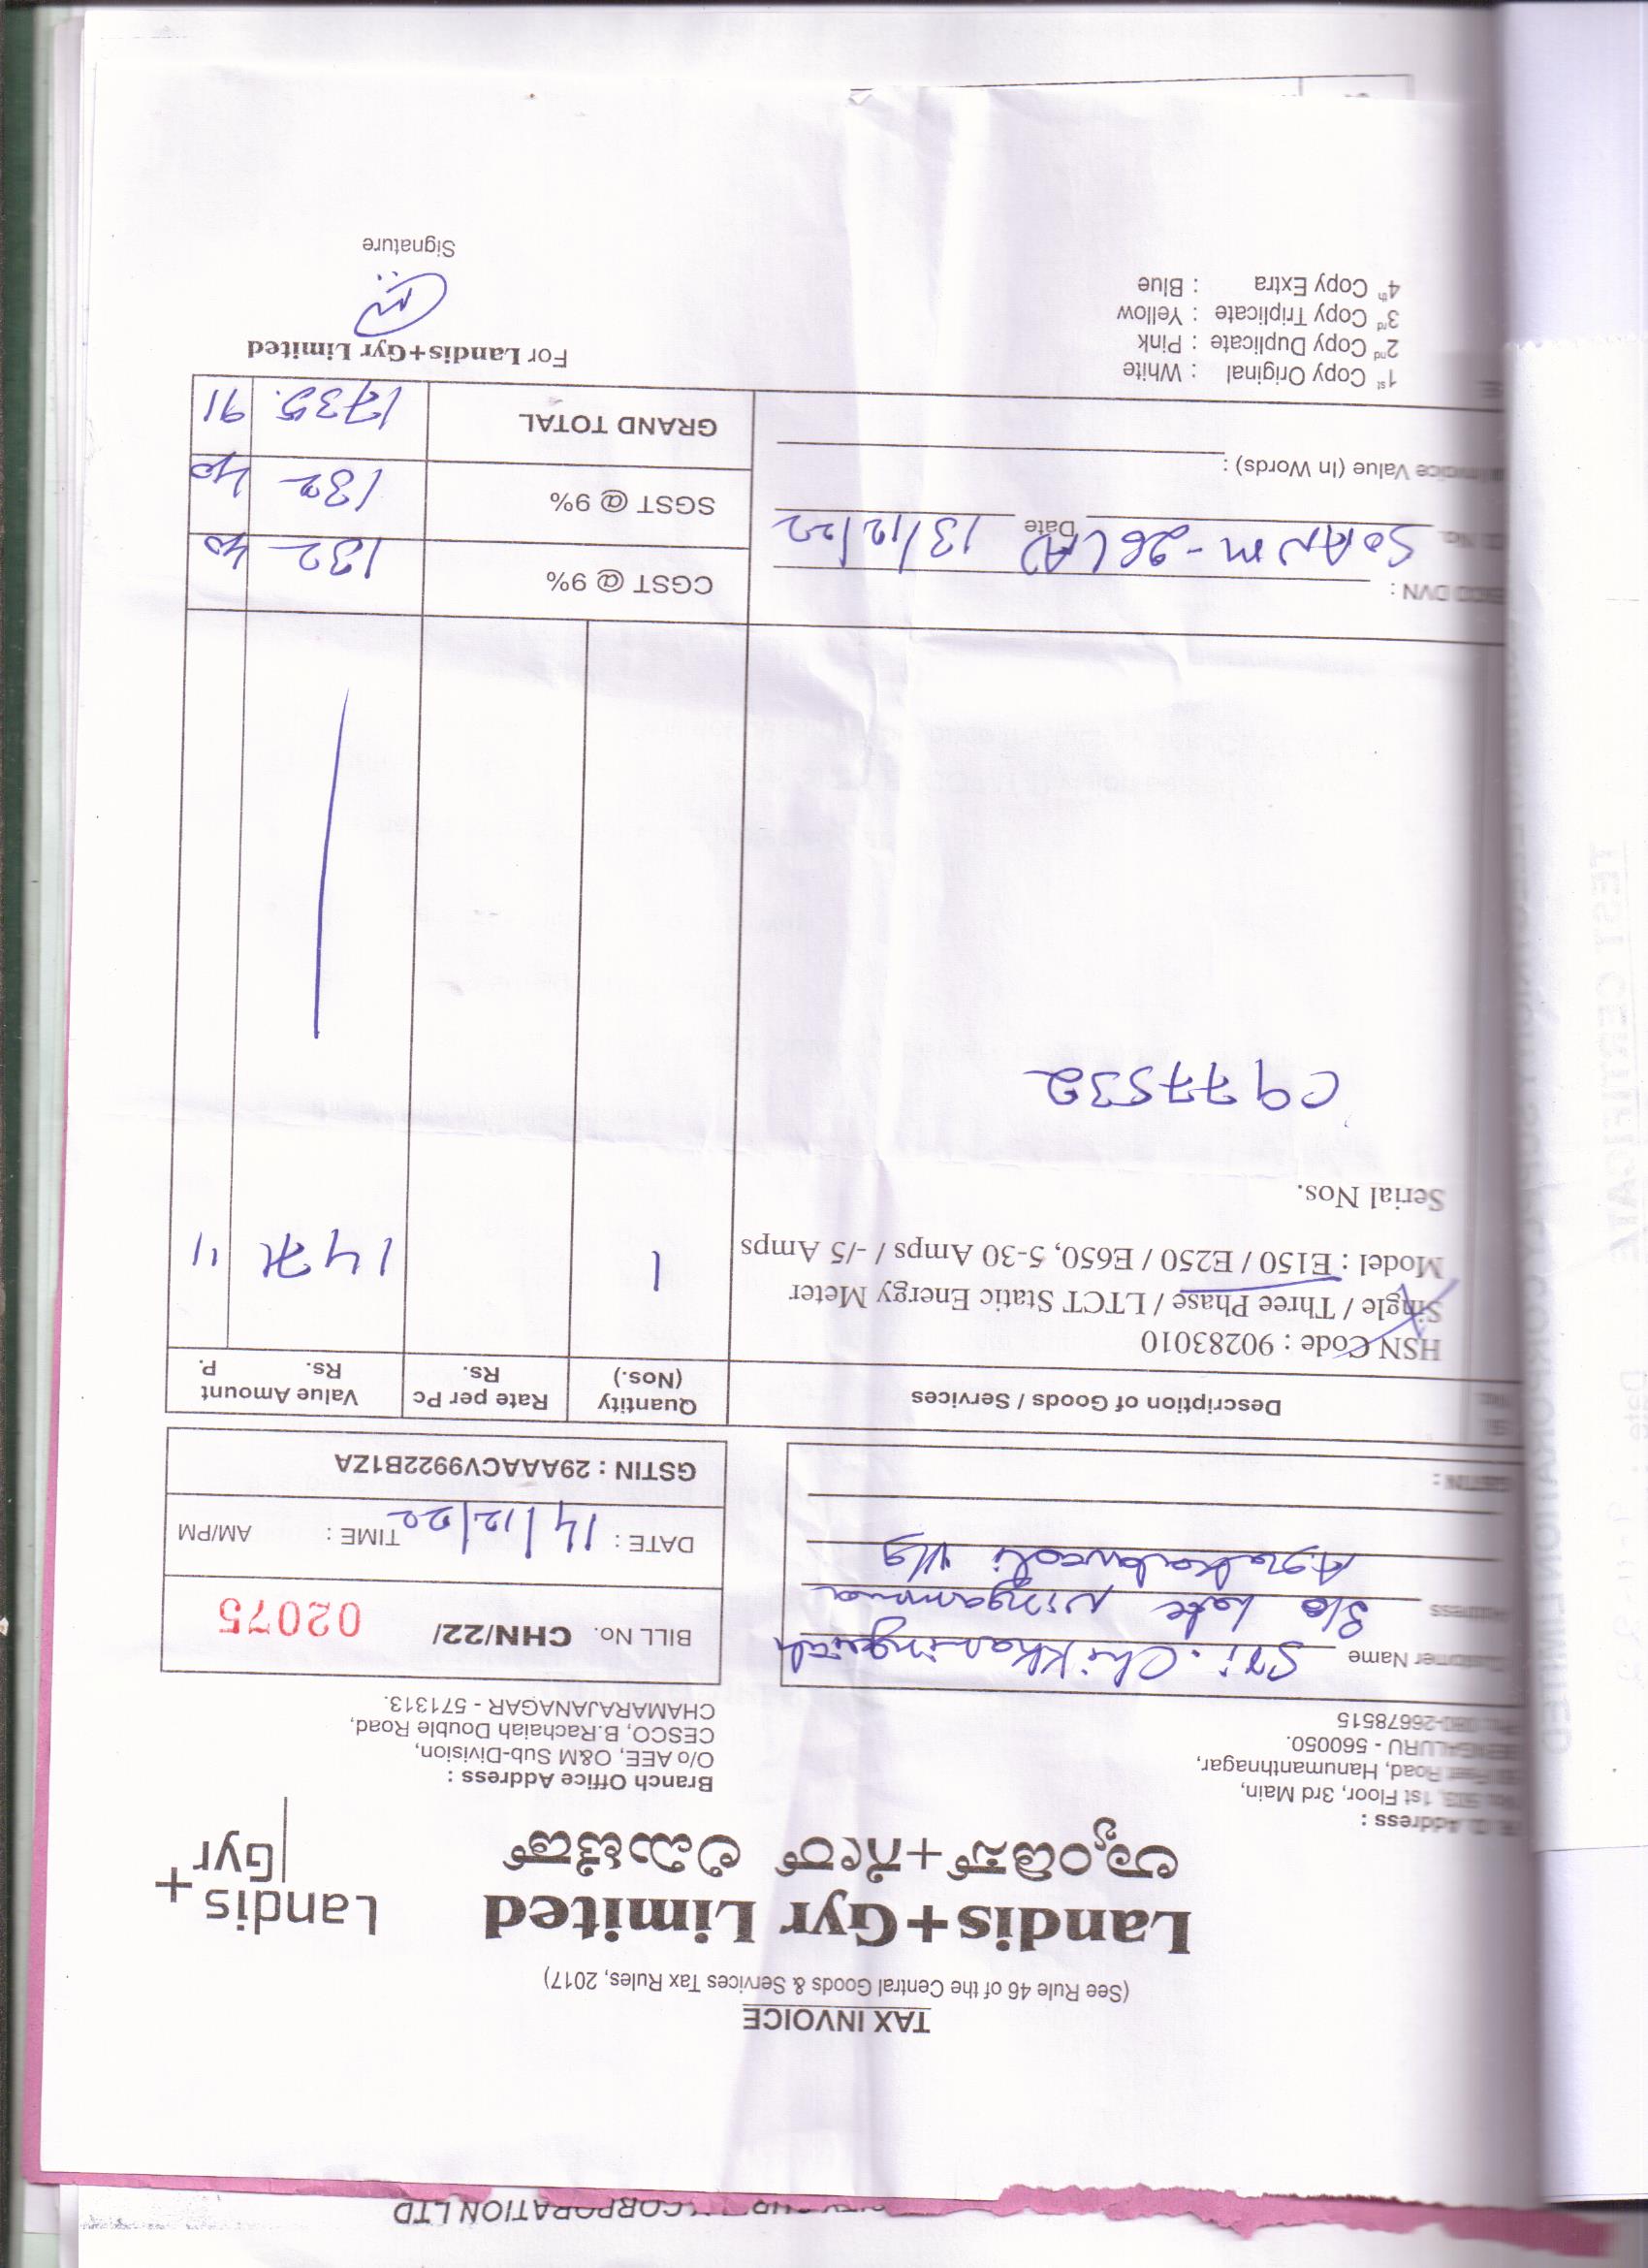 TAX INVOICE
(See Rule 46 of the Central Goods & Services Tax Rules, 2017)
Landis+Gyr Limited
ಲ್ಯಾಂಡಿಸ್+ಗೇರ್ ಲಿಮಿಟೆಡ್
Landis
Gyr+
Address :
1st Floor, 3rd Main,
Feet Road, Hanumanthnagar,
BENGALURU - 560050.
Ph: 080-26678515
Branch Office Address :
O/o AEE, O&M Sub-Division,
CESCO, B.Rachaiah Double Road,
CHAMARAJANAGAR - 571313.
Customer Name Sri. Chikkaningaiah
Address S/o Late Ningamma
Vlg
GSTIN :
BILL No. CHN/22/ 02075
DATE : 14/12/22 TIME : AM/PM
GSTIN : 29AAACV9922B1ZA
Sl. No. Description of Goods / Services Quantity (Nos.) Rate per Pc Rs. Value Amount Rs. P.
HSN Code : 90283010
Single / Three Phase / LTCT Static Energy Meter
Model : E150 / E250 / E650, 5-30 Amps / -/5 Amps 1 1471 11
Serial Nos.
C977532
DVN :
No. Date 13/12/22
Invoice Value (In Words) :
CGST @ 9% 132 40
SGST @ 9% 132 40
GRAND TOTAL 1735. 91
1st Copy Original : White
2nd Copy Duplicate : Pink
3rd Copy Triplicate : Yellow
4th Copy Extra : Blue
For Landis+Gyr Limited
Signature
CORPORATION LTD
TEST CERTIFICATE